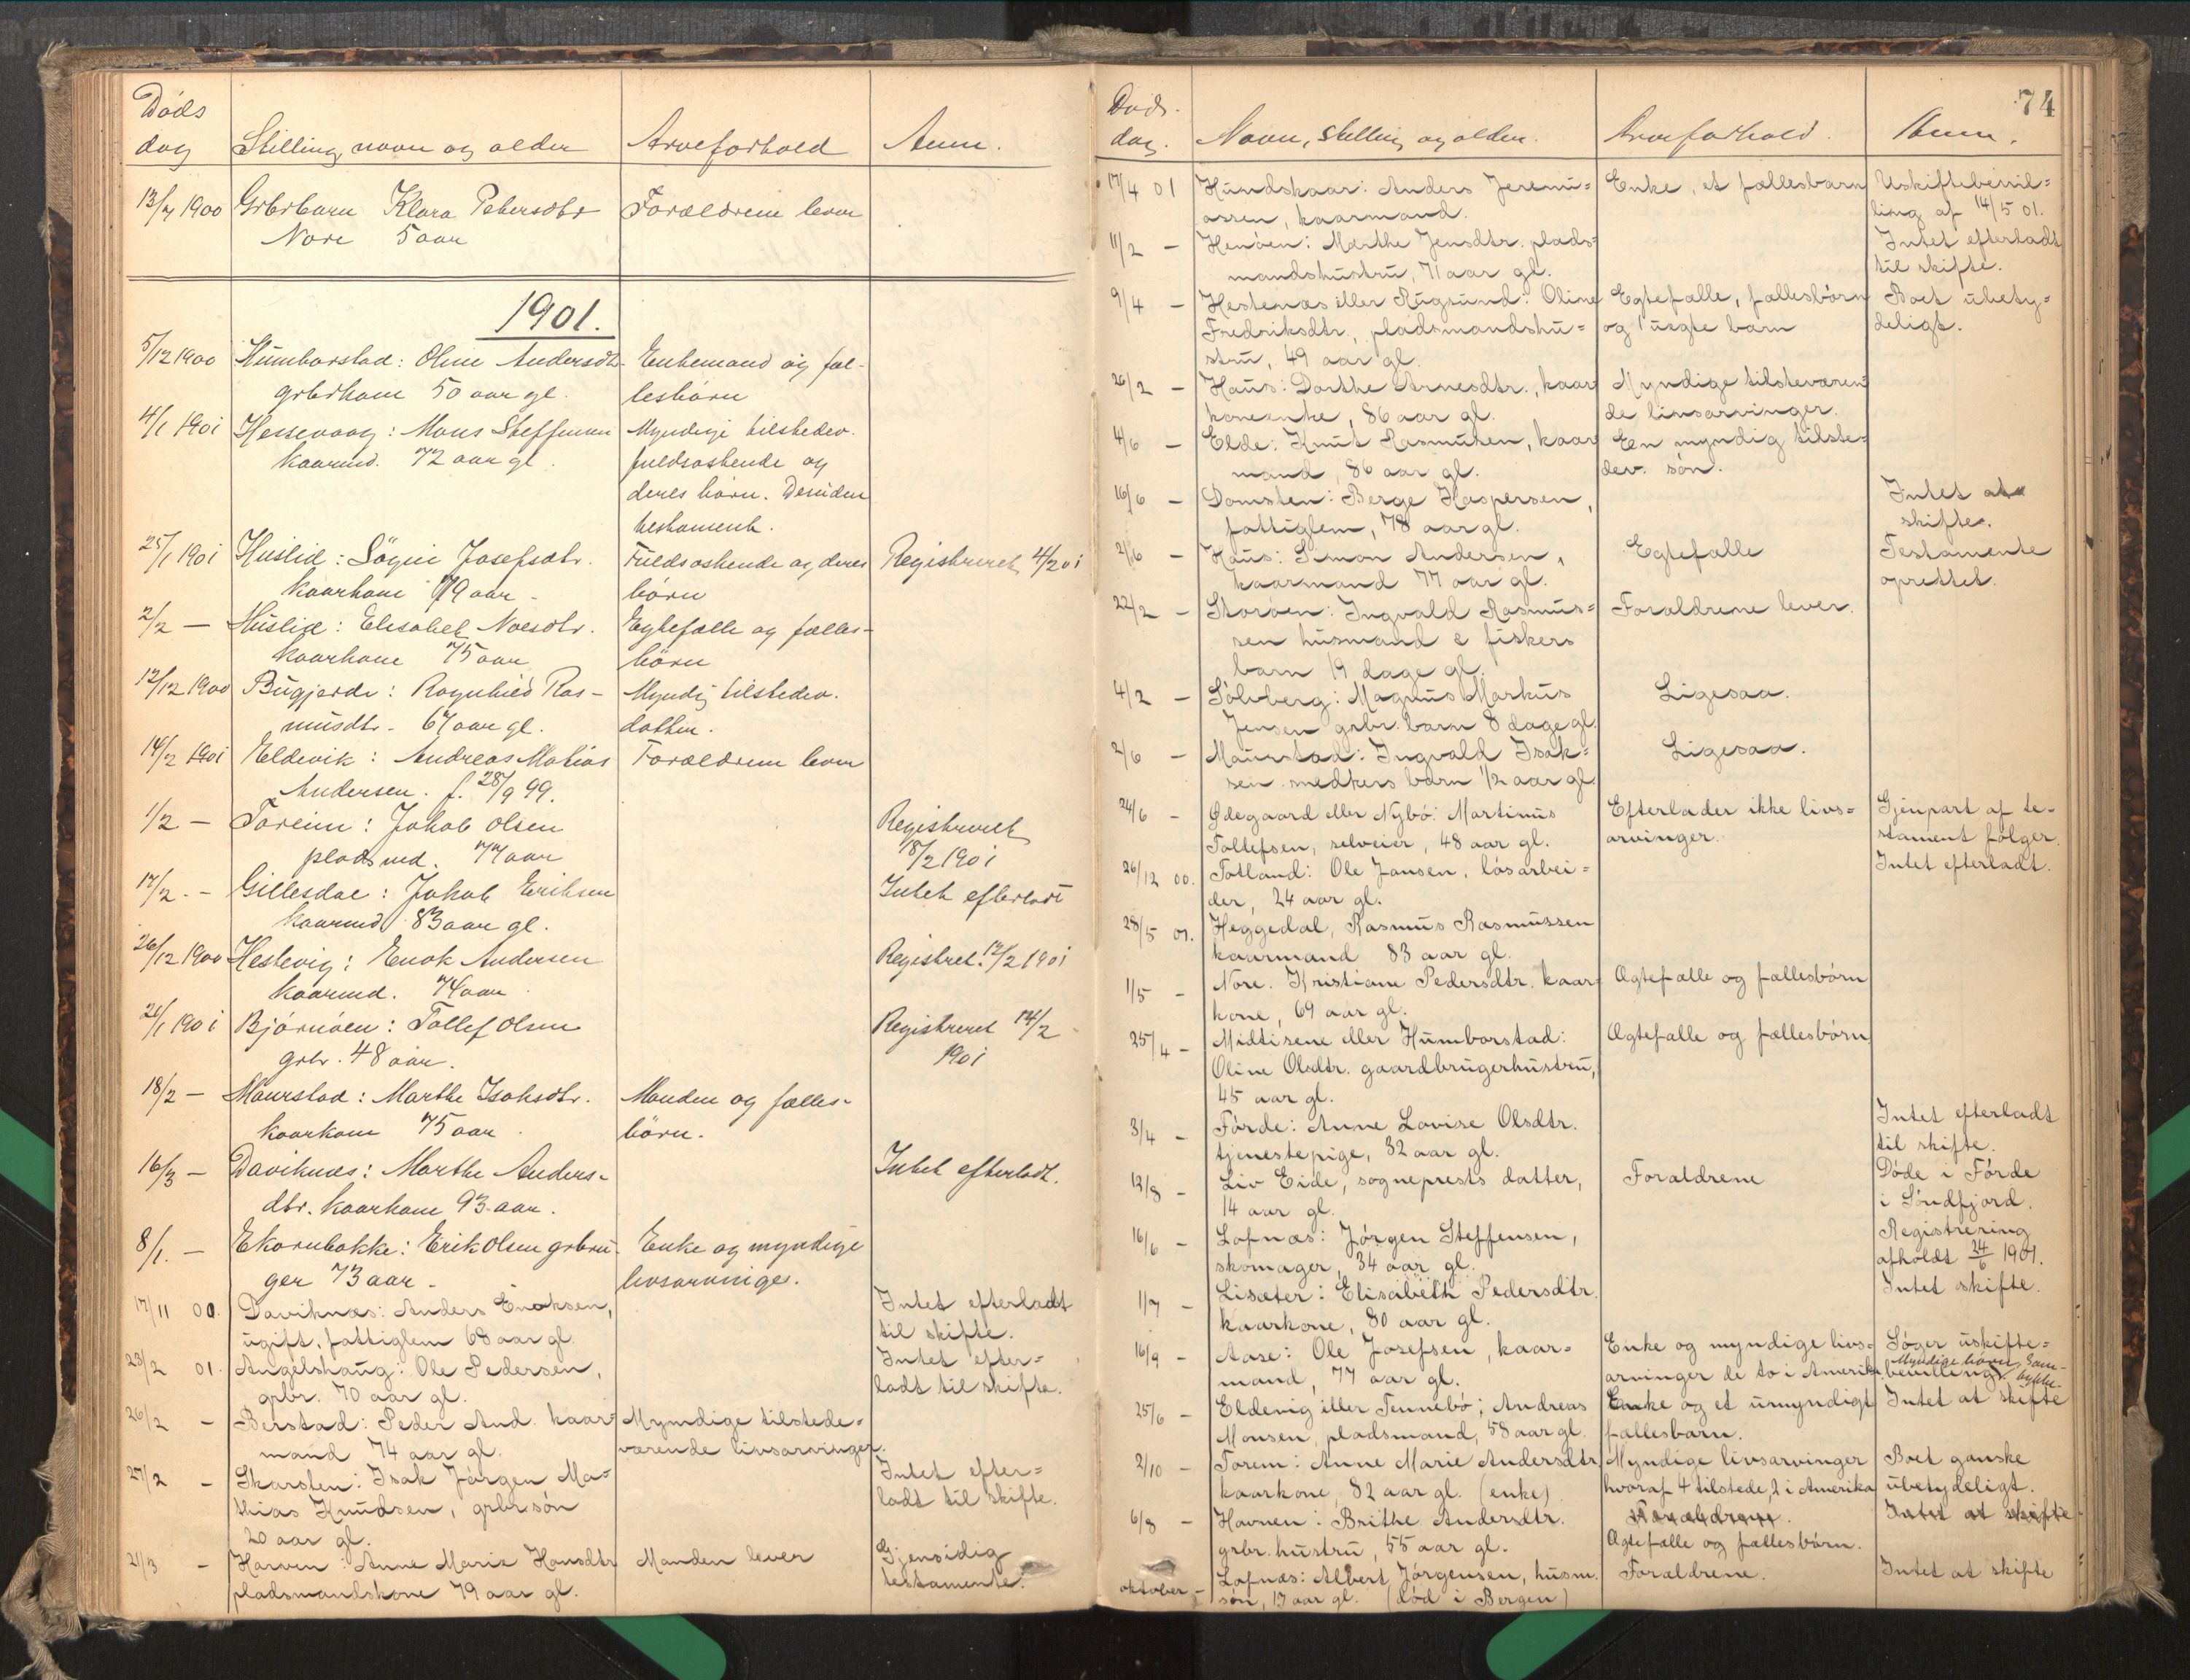 Döds
dag Stilling, navn og alder Arveforhold Anm.
13/7 1900 Grbrbarn Klara Petersdtr Forældrene lever
Nore 5 aar
1901.
5/12 1900 Humborstad: Oline Andersdtr. Enkemand og fæl-
grbrkone 50 aar gl. lesbörn
4/1 1901 Hessevaag: Mons Steffensen Myndige tilstedev.
kaarmd. 72 aar gl. fuldsøskende og
deres børn. Desuden
testament.
25/1 1901 Huslid: Sögni Josefsdtr. Fuldsøskende og deres Registreret 4/2 01
kaarkone 79 aar - börn
2/2 — Huslid: Elisabet Noesdtr. Egtefælle og fælles-
kaarkone 75 aar börn
12/12 1900 Bugjerde: Ragnhild Ras- Myndig tilstedev.
musdtr. 67 aar gl. datter.
14/2 1901 Eldevik: Andreas Matias Forældrene lever
Andersen. f. 28/9 99.
1/2 — Foreim: Jakob Olsen Registreret
pladsmd. 77 aar 18/2 1901
17/2 - Gillesdal: Jakob Eriksen Intet efterladt
kaarmd 83 aar gl.
26/12 1900 Hestevig: Enok Andersen Registret. 12/2 1901
kaarmd. 74 aar
21/1 1901 Bjørnöen: Tollef Olsen Registreret 14/2
grbr. 48 aar. 1901
18/2 — Maurstad: Marthe Isaksdtr. Manden og fælles-
kaarkone 75 aar börn.
16/3 — Daviknæs: Marthe Anders- Intet efterladt.
dtr. kaarkone 93 aar.
8/1 — Ekornbakke: Erik Olsen grbru- Enke og myndige
ger 73 aar - livsarvinge.
17/11 00. Daviknæs: Anders Enoksen, Intet efterladt
ugift, fattiglem 68 aar gl til skifte.
23/2 01. Angelshaug: Ole Pedersen, Intet efter=
grbr. 70 aar gl. ladt til skifte.
26/2 - Berstad: Peder And. kaar= Myndige tilstede=
mand 74 aar gl. værende livsarvinger.
27/2 - Skarsten: Isak Jörgen Ma= Intet efter=
thias Knudsen, grbr søn ladt til skifte.
20 aar gl.
21/3 - Harven: Anne Marie Hansdtr Manden lever Gjensidig
pladsmandskone 79 aar gl. testamente.
74
Döds-
dag. Navn, stilling og alder. Arveforhold. Anm.
17/4 01 Hundskaar: Anders Jeremi= Enke, et fællesbarn Uskiftebevil=
assen, kaarmand. ling af 14/5 01.
11/2 — Henöen: Marthe Jensdtr. plads= Intet efterladt
mandshustru, 71 aar gl. til skifte.
9/4 — Hestenæs eller Rugsund: Oline Egtefælle, fællesbörn Boet ubety=
Fredriksdtr., pladsmandshu= og 1 uegte barn deligt.
stru, 49 aar gl.
26/2 — Haus: Dorthe Arnesdtr., kaar Myndige tilsteværen=
koneenke, 86 aar gl. de livsarvinger.
4/6 — Elde: Knut Rasmusen, kaar En myndig tilste=
mand, 86 aar gl. dev. sön.
16/6 — Domsten: Berge Kaspersen, Intet at
fattiglem, 78 aar gl. skifte.
2/6 — Haus: Simon Andersen, Egtefælle Testamente
kaarmand 77 aar gl. oprettet.
22/2 — Storöen: Ingvald Rasmus= Foraldrene lever.
sen husmand & fiskers
barn 19 dage gl.
4/2 — Sölvberg: Magnus Markus Ligesaa.
Jensen grbr. barn 8 dage gl.
2/6 — Maurstad: Ingvald Isak= Ligesaa.
sen medkers barn 1/2 aar gl
24/6 - Ødegaard eller Nybö: Martinus Efterlader ikke livs= Gjenpart af te-
Tollefsen, selveier, 48 aar gl. arvinger. stament følger.
26/12 00. Totland: Ole Jansen, løsarbei= Intet efterladt.
der, 24 aar gl.
28/5 01. Heggedal, Rasmus Rasmussen
kaarmand 83 aar gl.
1/5 - Nore. Kristiane Pedersdtr. kaar= Ægtefælle og fællesbörn
kone, 69 aar gl.
25/4 - Midtisene eller Humborstad: Ægtefælle og fællesbörn
Oline Olsdtr. gaardbrugerhustru,
45 aar gl.
3/4 - Förde: Anne Lovise Olsdtr. Intet efterladt
tjenestepige, 32 aar gl. til skifte.
12/8 - Liv Eide, sogneprests datter, Foraldrene Døde i Førde
14 aar gl. i Söndfjord.
16/6 - Lofnæs: Jørgen Steffensen, Registrering
skomager, 34 aar gl. afholdt 24/6 1901.
1/7 - Lisæter: Elisabeth Pedersdtr. Intet skifte.
kaarkone, 80 aar gl.
16/9 - Aase: Ole Josefsen, kaar= Enke og myndige livs= Søger uskifte=
mand, 77 aar gl. arvinger de to i Amerika bevilling. Myndige börn,
25/6 - Eldevig eller Tennebö; Andreas Enke og et umyndigt Intet at skifte
Monsen, pladsmand, 58 aar gl. fællesbarn.
2/10 - Forem: Anne Marie Andersdtr. Myndige livsarvinger Boet ganske
kaarkone, 82 aar gl. (enke) hvoraf 4 tilstede, 2 i Amerika ubetydeligt.
6/8 - Havnen: Brithe Andersdtr. Foraldrene. Intet at skifte
grbr. hustru, 55 aar gl. Ægtefælle og fællesbørn.
oktober - Lofnæs: Albert Jørgensen, husm. Foraldrene. Intet at skifte
søn, 17 aar gl. (død i Bergen)